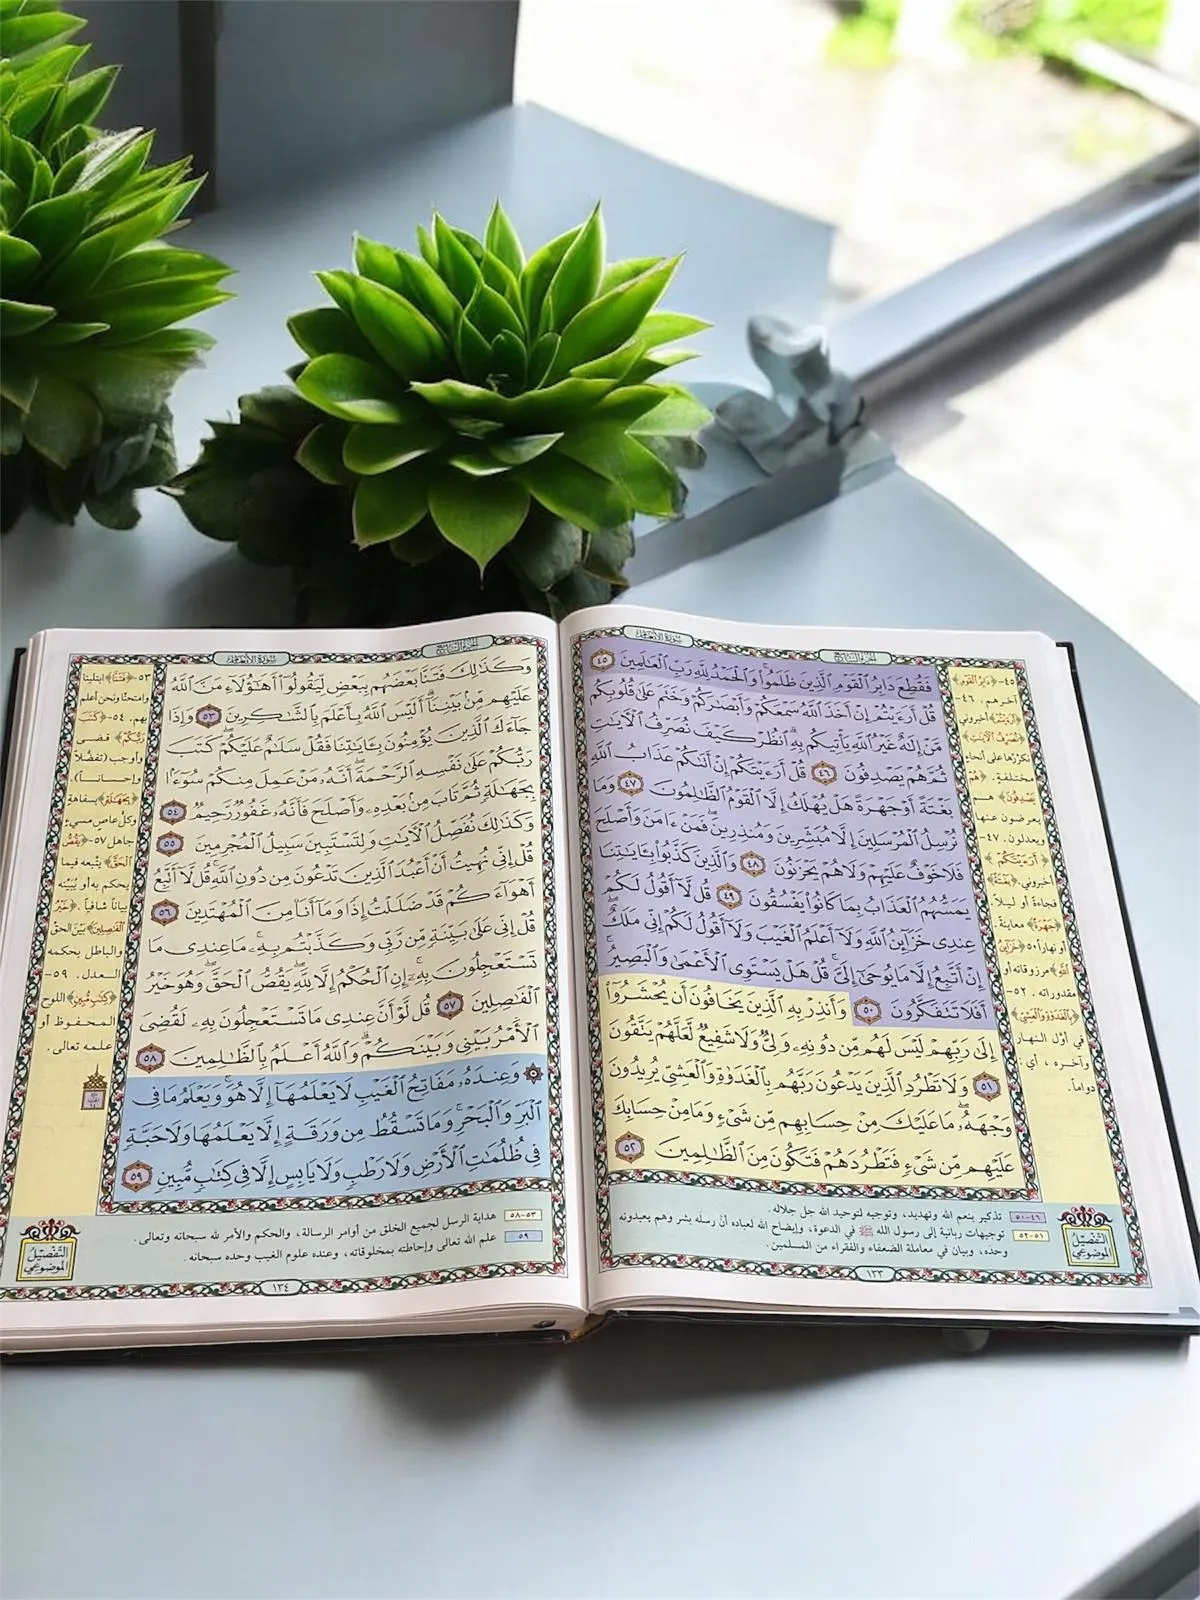 سورة الأنعام
الجزء السابع
فَقُطِعَ دَابِرُ ٱلْقَوْمِ ٱلَّذِينَ ظَلَمُوا۟ وَٱلْحَمْدُ لِلَّهِ رَبِّ ٱلْعَـٰلَمِينَ ٤٥
قُلْ أَرَءَيْتُمْ إِنْ أَخَذَ ٱللَّهُ سَمْعَكُمْ وَأَبْصَـٰرَكُمْ وَخَتَمَ عَلَىٰ قُلُوبِكُم
مَّنْ إِلَـٰهٌ غَيْرُ ٱللَّهِ يَأْتِيكُم بِهِ ٱنظُرْ كَيْفَ نُصَرِّفُ ٱلْـَٔايَـٰتِ
ثُمَّ هُمْ يَصْدِفُونَ ٤٦ قُلْ أَرَءَيْتَكُمْ إِنْ أَتَىٰكُمْ عَذَابُ ٱللَّهِ
بَغْتَةً أَوْ جَهْرَةً هَلْ يُهْلَكُ إِلَّا ٱلْقَوْمُ ٱلظَّـٰلِمُونَ ٤٧ وَمَا
نُرْسِلُ ٱلْمُرْسَلِينَ إِلَّا مُبَشِّرِينَ وَمُنذِرِينَ فَمَنْ ءَامَنَ وَأَصْلَحَ
فَلَا خَوْفٌ عَلَيْهِمْ وَلَا هُمْ يَحْزَنُونَ ٤٨ وَٱلَّذِينَ كَذَّبُوا۟ بِـَٔايَـٰتِنَا
يَمَسُّهُمُ ٱلْعَذَابُ بِمَا كَانُوا۟ يَفْسُقُونَ ٤٩ قُل لَّآ أَقُولُ لَكُمْ
عِندِى خَزَآئِنُ ٱللَّهِ وَلَآ أَعْلَمُ ٱلْغَيْبَ وَلَآ أَقُولُ لَكُمْ إِنِّى مَلَكٌ
إِنْ أَتَّبِعُ إِلَّا مَا يُوحَىٰٓ إِلَىَّ قُلْ هَلْ يَسْتَوِى ٱلْأَعْمَىٰ وَٱلْبَصِيرُ
أَفَلَا تَتَفَكَّرُونَ ٥٠ وَأَنذِرْ بِهِ ٱلَّذِينَ يَخَافُونَ أَن يُحْشَرُوٓا۟
إِلَىٰ رَبِّهِمْ لَيْسَ لَهُم مِّن دُونِهِۦ وَلِىٌّ وَلَا شَفِيعٌ لَّعَلَّهُمْ يَتَّقُونَ
٥١ وَلَا تَطْرُدِ ٱلَّذِينَ يَدْعُونَ رَبَّهُم بِٱلْغَدَوٰةِ وَٱلْعَشِىِّ يُرِيدُونَ
وَجْهَهُۥ مَا عَلَيْكَ مِنْ حِسَابِهِم مِّن شَىْءٍ وَمَا مِنْ حِسَابِكَ
عَلَيْهِم مِّن شَىْءٍ فَتَطْرُدَهُمْ فَتَكُونَ مِنَ ٱلظَّـٰلِمِينَ ٥٢
٤٥-﴿دَابِرُ ٱلْقَوْمِ﴾
آخرهم. ٤٦-
﴿أَرَءَيْتُمْ﴾ أخبروني
﴿نُصَرِّفُ ٱلْـَٔايَـٰتِ﴾
نكررها على أنحاء
مختلفة. ﴿هُمْ
يَصْدِفُونَ﴾ هم
يعرضون عنها
ويعدلون. ٤٧-
﴿أَرَءَيْتَكُمْ﴾
أخبروني. ﴿بَغْتَةً﴾
فجاءة أو ليلاً.
﴿جَهْرَةً﴾ معاينةً.
أو نهاراً ٥٠ ﴿خَزَآئِنُ
ٱللَّهِ﴾ مرزوقاته أو
مقدوراته. ٥٢-
﴿بِٱلْغَدَوٰةِ وَٱلْعَشِىِّ﴾
في أوّل النهار
وآخره، أي
دواماً.
التفصيل الموضوعي
٤٦-٥٠ تذكير بنعم الله وتهديد، وتوجيه لتوحيد الله جل جلاله.
٥١-٥٢ توجيهات ربانية إلى رسول الله ﷺ في الدعوة، وإيضاح الله لعباده أنّ رسله بشر وهم يعبدونه
وحده، وبيان في معاملة الضعفاء والفقراء من المسلمين.
١٣٣
الجزء السابع
سورة الأنعام
وَكَذَٰلِكَ فَتَنَّا بَعْضَهُم بِبَعْضٍ لِّيَقُولُوٓا۟ أَهَـٰٓؤُلَآءِ مَنَّ ٱللَّهُ
عَلَيْهِم مِّنۢ بَيْنِنَآ أَلَيْسَ ٱللَّهُ بِأَعْلَمَ بِٱلشَّـٰكِرِينَ ٥٣ وَإِذَا
جَآءَكَ ٱلَّذِينَ يُؤْمِنُونَ بِـَٔايَـٰتِنَا فَقُلْ سَلَـٰمٌ عَلَيْكُمْ كَتَبَ
رَبُّكُمْ عَلَىٰ نَفْسِهِ ٱلرَّحْمَةَ أَنَّهُۥ مَنْ عَمِلَ مِنكُمْ سُوٓءًۢا
بِجَهَـٰلَةٍ ثُمَّ تَابَ مِنۢ بَعْدِهِۦ وَأَصْلَحَ فَأَنَّهُۥ غَفُورٌ رَّحِيمٌ ٥٤
وَكَذَٰلِكَ نُفَصِّلُ ٱلْـَٔايَـٰتِ وَلِتَسْتَبِينَ سَبِيلُ ٱلْمُجْرِمِينَ ٥٥
قُلْ إِنِّى نُهِيتُ أَنْ أَعْبُدَ ٱلَّذِينَ تَدْعُونَ مِن دُونِ ٱللَّهِ قُل لَّآ أَتَّبِعُ
أَهْوَآءَكُمْ قَدْ ضَلَلْتُ إِذًا وَمَآ أَنَا۠ مِنَ ٱلْمُهْتَدِينَ ٥٦
قُلْ إِنِّى عَلَىٰ بَيِّنَةٍ مِّن رَّبِّى وَكَذَّبْتُم بِهِۦ مَا عِندِى مَا
تَسْتَعْجِلُونَ بِهِۦٓ إِنِ ٱلْحُكْمُ إِلَّا لِلَّهِ يَقُصُّ ٱلْحَقَّ وَهُوَ خَيْرُ
ٱلْفَـٰصِلِينَ ٥٧ قُل لَّوْ أَنَّ عِندِى مَا تَسْتَعْجِلُونَ بِهِۦ لَقُضِىَ
ٱلْأَمْرُ بَيْنِى وَبَيْنَكُمْ وَٱللَّهُ أَعْلَمُ بِٱلظَّـٰلِمِينَ ٥٨
۞ وَعِندَهُۥ مَفَاتِحُ ٱلْغَيْبِ لَا يَعْلَمُهَآ إِلَّا هُوَ وَيَعْلَمُ مَا فِى
ٱلْبَرِّ وَٱلْبَحْرِ وَمَا تَسْقُطُ مِن وَرَقَةٍ إِلَّا يَعْلَمُهَا وَلَا حَبَّةٍ
فِى ظُلُمَـٰتِ ٱلْأَرْضِ وَلَا رَطْبٍ وَلَا يَابِسٍ إِلَّا فِى كِتَـٰبٍ مُّبِينٍ ٥٩
٥٣-﴿فَتَنَّا﴾ ابتلينا
وامتحنّا ونحن أعلم
بهم. ٥٤-﴿كَتَبَ
رَبُّكُمْ﴾ قضى
وأوجب (تفضّلاً
وإحساناً).
﴿بِجَهَـٰلَةٍ﴾ بسفاهة
وكلّ عاصٍ مسيء
جاهل ٥٧-﴿يَقُصُّ
ٱلْحَقَّ﴾ يتّبعه فيما
يحكم به أو يُبيّنه
بياناً شافياً. ﴿خَيْرُ
ٱلْفَـٰصِلِينَ﴾ بين الحقّ
والباطل بحكمه
العدل. ٥٩-
﴿كِتَـٰبٍ مُّبِينٍ﴾ اللوح
المحفوظ أو
علمه تعالى.
٥٣-٥٨ هداية الرسل لجميع الخلق من أوامر الرسالة، والحكم والأمر لله سبحانه وتعالى.
٥٩ علم الله تعالى وإحاطته بمخلوقاته، وعنده علوم الغيب وحده سبحانه.
التفصيل الموضوعي
١٣٤